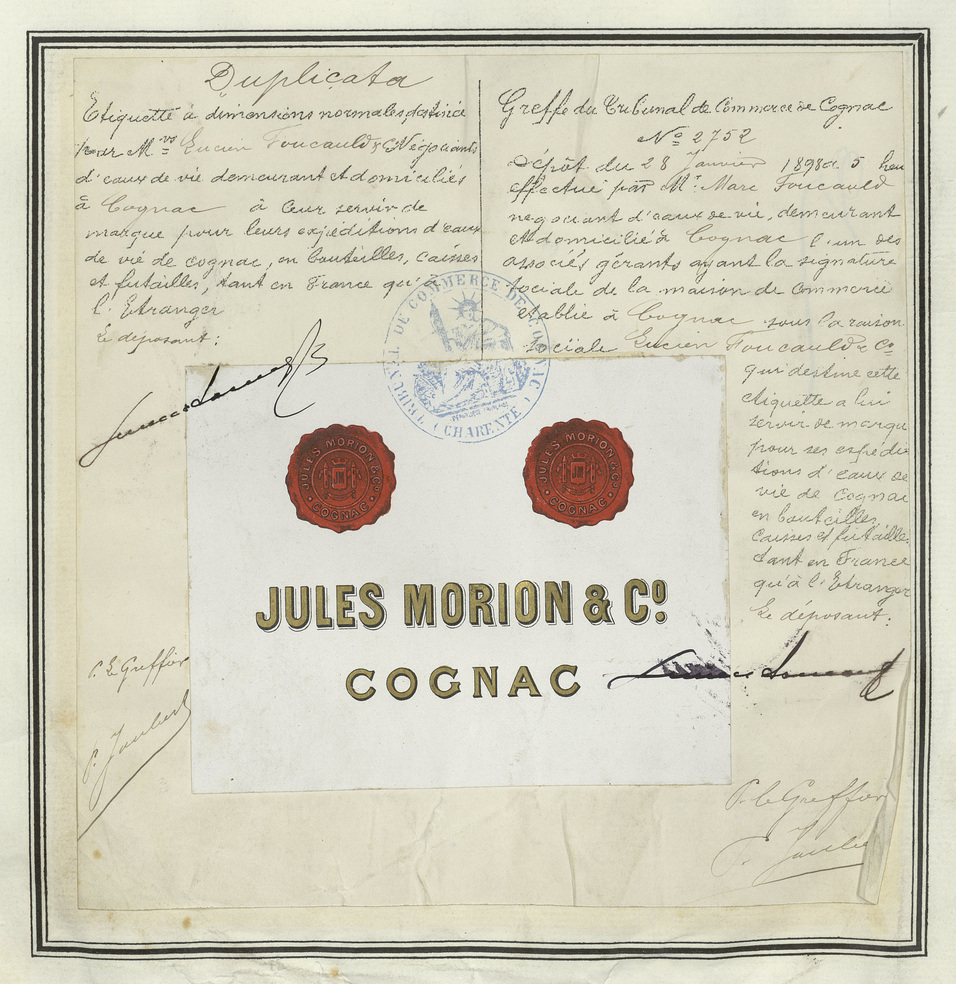 Duplicata
Etiquette à dimensions normales destinée
pour M.rs Lucien Foucauld & C Négociants
d'eaux de vie demeurant et domiciliés
à Cognac à leur servir de
marque pour leurs expéditions d'eaux
de vie de cognac, en bouteilles, caisses
et futailles, tant en France qu'à
l'Etranger
Le déposant:
Greffe du Tribunal de Commerce de Cognac
No 2752
Dépôt du 28 Janvier 1898 à 5 heu
effectué par Mr. Marc Foucauld
negociant d'eaux de vie, demeurant
et domicilié à Cognac l'un des
associés gérants ayant la signature
sociale de la maison de commerce
établie à Cognac sous la raison
sociale Lucien Foucauld & Co
qui destine cette
étiquette a lui
servir de marqu
pour ses expédi
tions d'eaux de
vie de Cognac
en bouteilles,
caisses et futaille
tant en France
qu'à l'Etranger
Le déposant:
TRIBUNAL DE COMMERCE DE COGNAC
(CHARENTE)
JULES MORION & Co
COGNAC
JULES MORION & Co
COGNAC
JULES MORION & Co
COGNAC
P. le Greffier
P. le Greffier